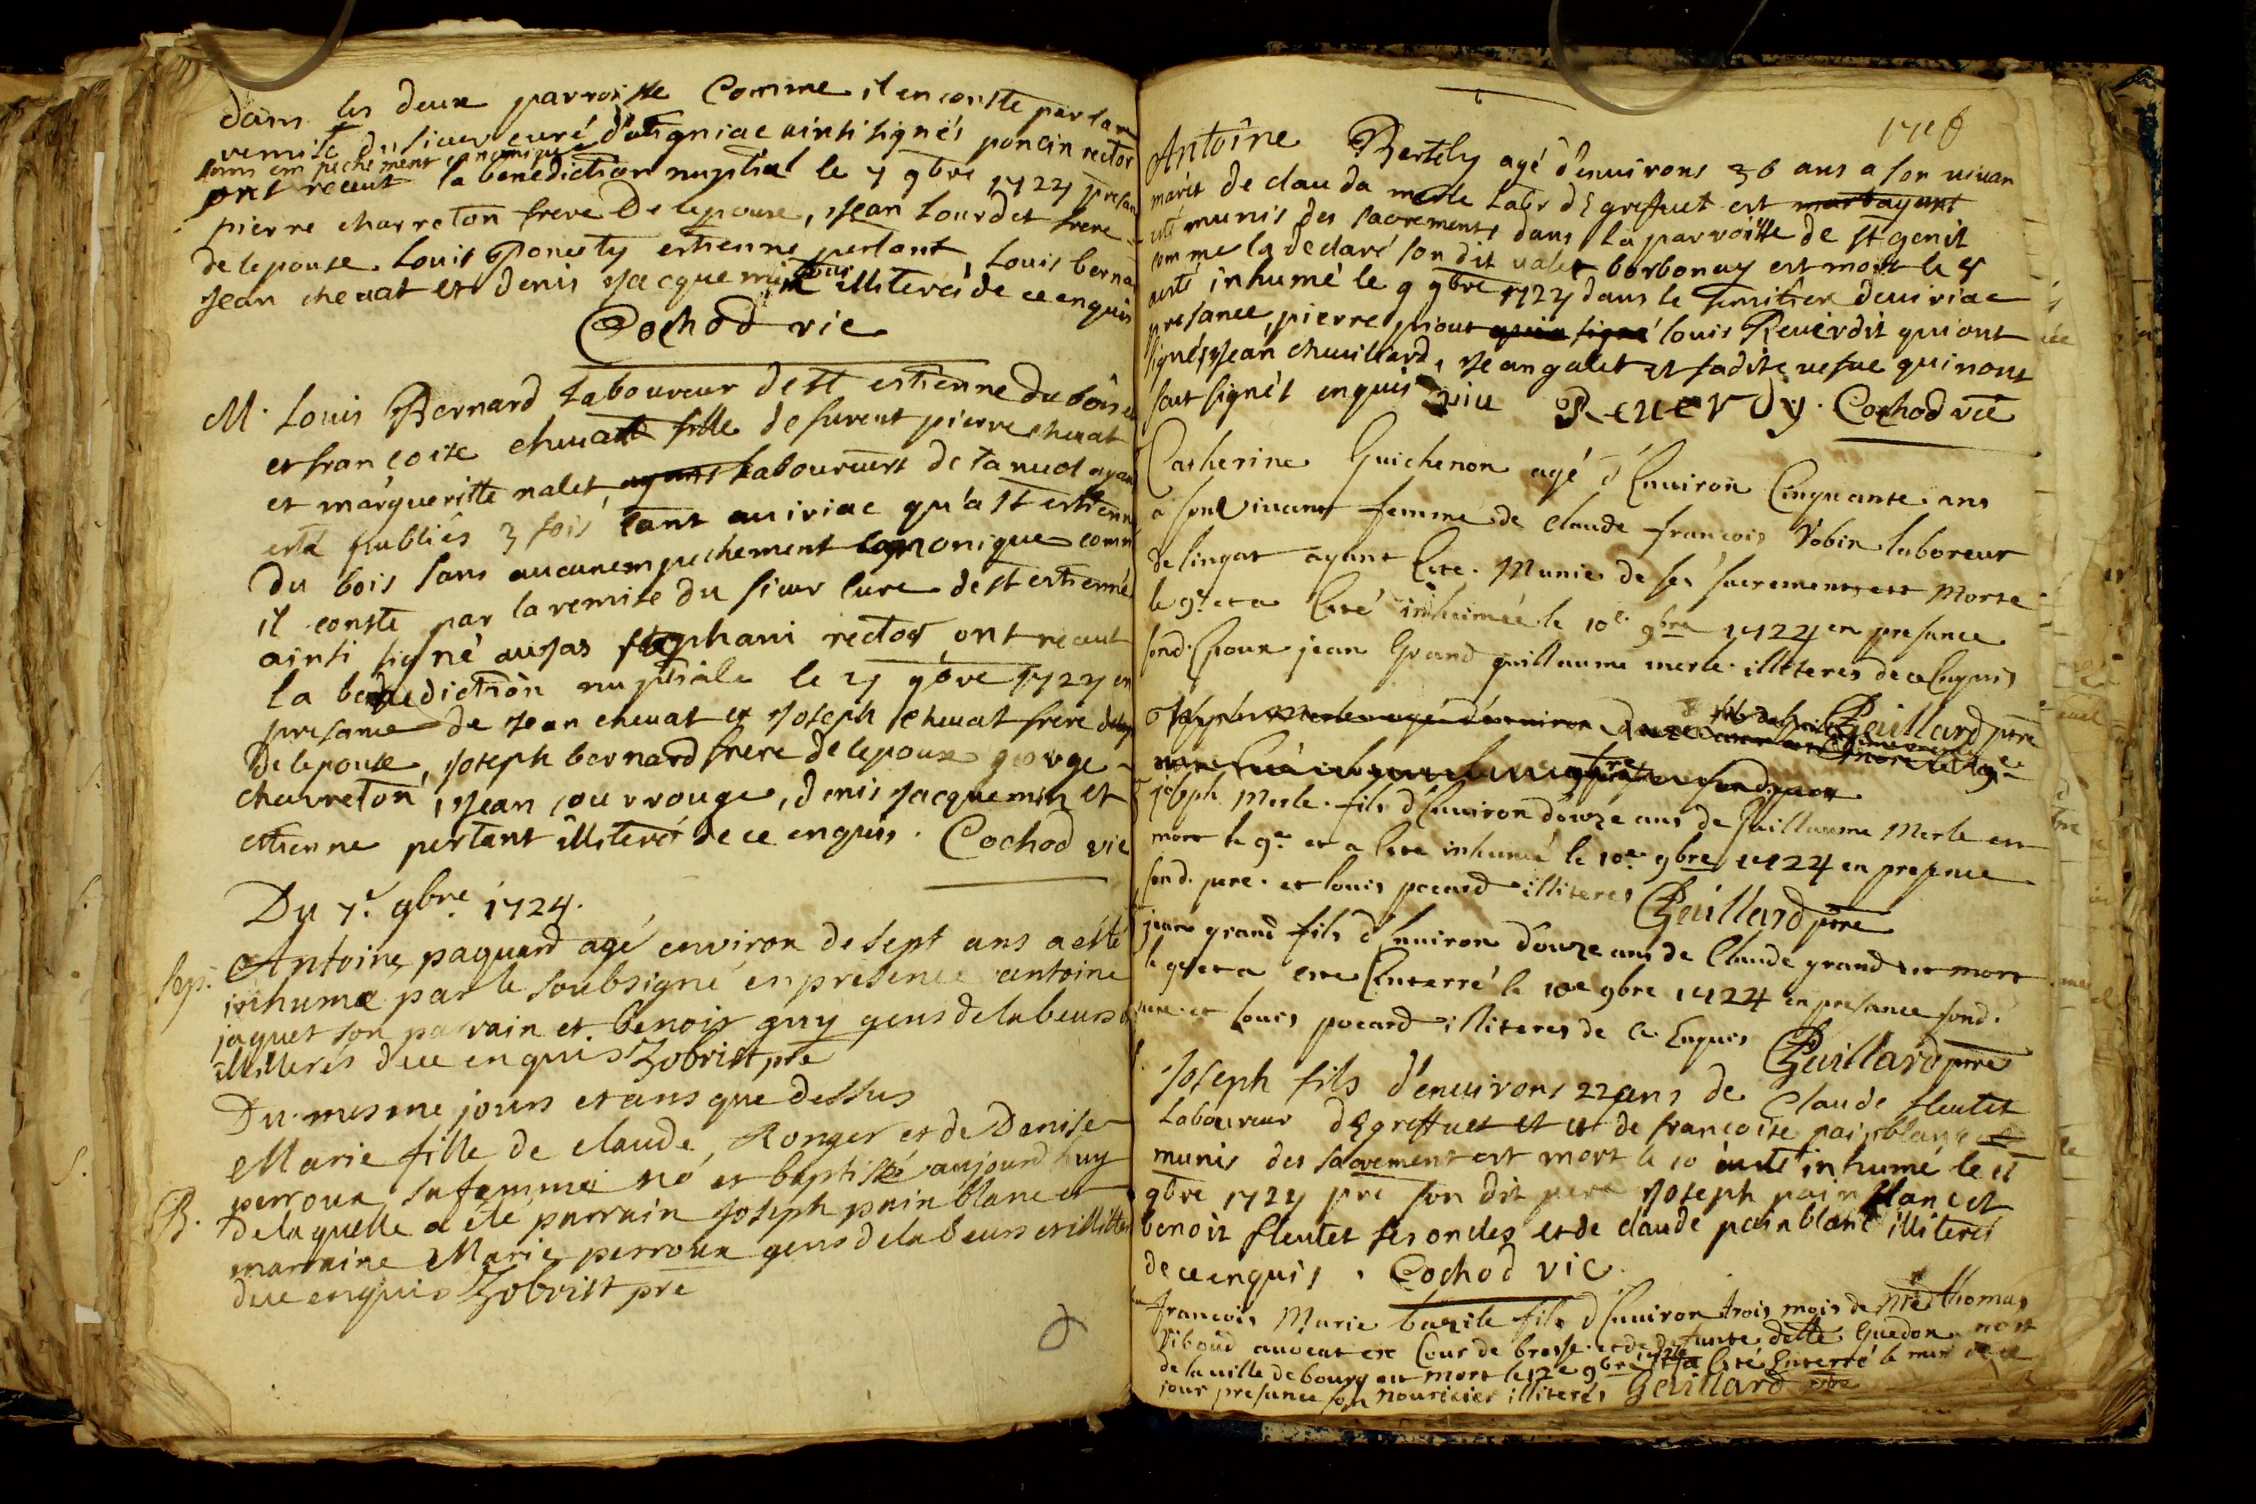 dans les deux parroisse Comme il en conste par la
remise du sieur curé d'assigniac ainsi signés poncin rector
sans empechement canonique
ont receut la benediction nuptial le 7 9bre 1724 presan
pierre charreton frere De lepouse, Jean Lourdet frere
de lepouse. Louis Ponesty estienne pertant, Louis berna
Jean chevat et denis Jacquemin tous illiterés de ce enquis
Cochod vic
M. Louis Bernard Laboureur de st estienne du bois
et françoise chevat fille de furent pierre chevat
et margueritte nalet, ayant laboureurs de ayant
esté publiés 3 fois tant auiriac qu'a st estienne
du bois sans aucun empechement canonique comm
il conste par la remise du sieur cure de st estienne
ainsi signé aujas stephani rector, ont receut
la benediction nuptiale le 7 9bre 1724 en
presance de Jean chevat et Joseph chevat frere
De lepouse, Joseph bernard frere de lepoux george
charreton, Jean courrouge, denis Jacquemin et
estienne pertant illiteré de ce enquis. Cochod vic
Du 7e. 9bre 1724.
Sep. Antoine paquard agé environ de sept ans a esté
inhumé par le soubsigné en presence antoine
jaquet son parrain et benoit guy gens de labeurs
illiterés de ce enquis Zobrist pre
Du mesme jours et ans que dessus
Marie fille de claude Ronger et de Denise
perroux sa femme né et baptisée aujourd'huy
B. de laquelle a été parrain Joseph pain blanc et
marraine Marie perroux gens de labeurs et illitteré
de ce enquis Zobrist pre
Antoine Bertily agé d'environs 36 ans a son vivan
marit de clauda merle Labr dEgreffuet est mort ayant
esté munis des sacrements dans la parroisse de st genis
comme la declaré son dit valet borbonay est mort le 8
a esté inhumé le 9 9bre 1724 dans le semitier deuiriac
presance, pierre priout qui a signé louis Reverdit qui ont
signés, Jean chuilliard, Jean galet et sadite vefve qui nont
sceut signés enquis Reuerdy. Cochod vic
Catherine Guichenon agé d'Environ Cinquante ans
a son vivant femme de Claude françois Robin laboreur
de lingat ayant Este Munie de ses sacrements est Morte
le 9e. et a Esté inhumée le 10e. 9bre 1724 en presance
sond. Epoux jean Grand guillaume merle illiteres de ce Enquis
Gaillard ptre
joseph Merle fils d'Environ douze ans de Guillaume Merle est
mort le 9e et a Este inhumé le 10e. 9bre 1724 en presence
sond. pere et louis pocard illiteres Gaillard ptre
jean grand fils d'Environ douze ans de Claude grand est mort
le 9e et a este Enterré le 10e 9bre 1724 en presance sond.
pere et louis pocard illiteres de ce Enquis Gaillard ptre
Joseph fils d'environs 22 ans de Claude fleutet
Laboureur dEgreffuet et de françoise painblanc
munis des sacrement est mort le 10 a esté inhumé le 11
9bre 1724 pre son dit pere Joseph pain blanc et
benoit fleutet ses oncles et de claude painblanc illiterés
de ce enquis. Cochod vic
françois Marie bazile fils d'Environ trois mois de Mre thomas
Riboud avocat en Cour de bresse et de defunte delle Guedon
de la ville de bourg est mort le 12e 9bre 1724 a Esté Enterré le
jour presance son nouricier illiterés Gaillard ptre